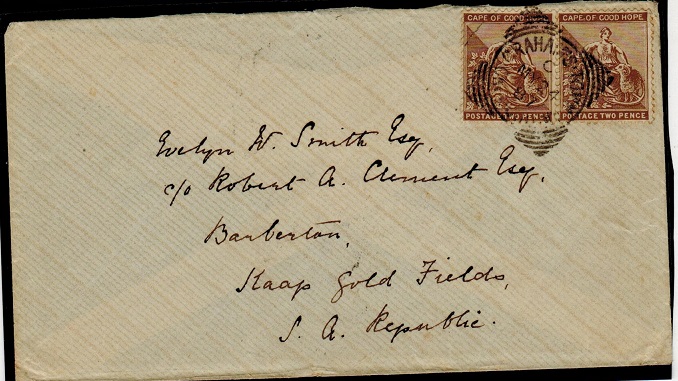 CAPE OF GOOD HOPE CAPE OF GOOD HOPE
GRAHAMSTOWN
C
27
POSTAGE TWO PENCE POSTAGE TWO PENCE
Evelyn W. Smith Esq,
c/o Robert A. Clement Esq,
Barberton,
Kaap Gold Fields,
S. A. Republic.